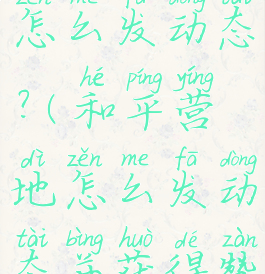 zěn me fā dòng tài
怎么发动态
hé píng yíng
?(和平营
dì zěn me fā dòng
地怎么发动
tài bìng huò dé zàn
态并获得赞